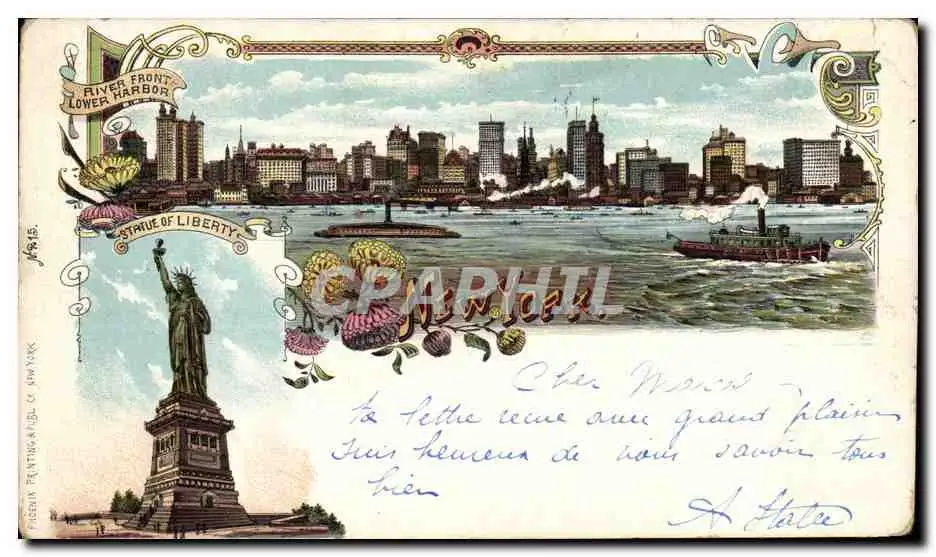 RIVER FRONT
LOWER HARBOR
STATUE OF LIBERTY
No 215.
PHOENIX PRINTING & PUBL. Co NEW YORK
CPARPHIL
NEW YORK.
Cher
ta lettre reçue avec grand plaisir
suis heureux de vous savoir tous
bien
A